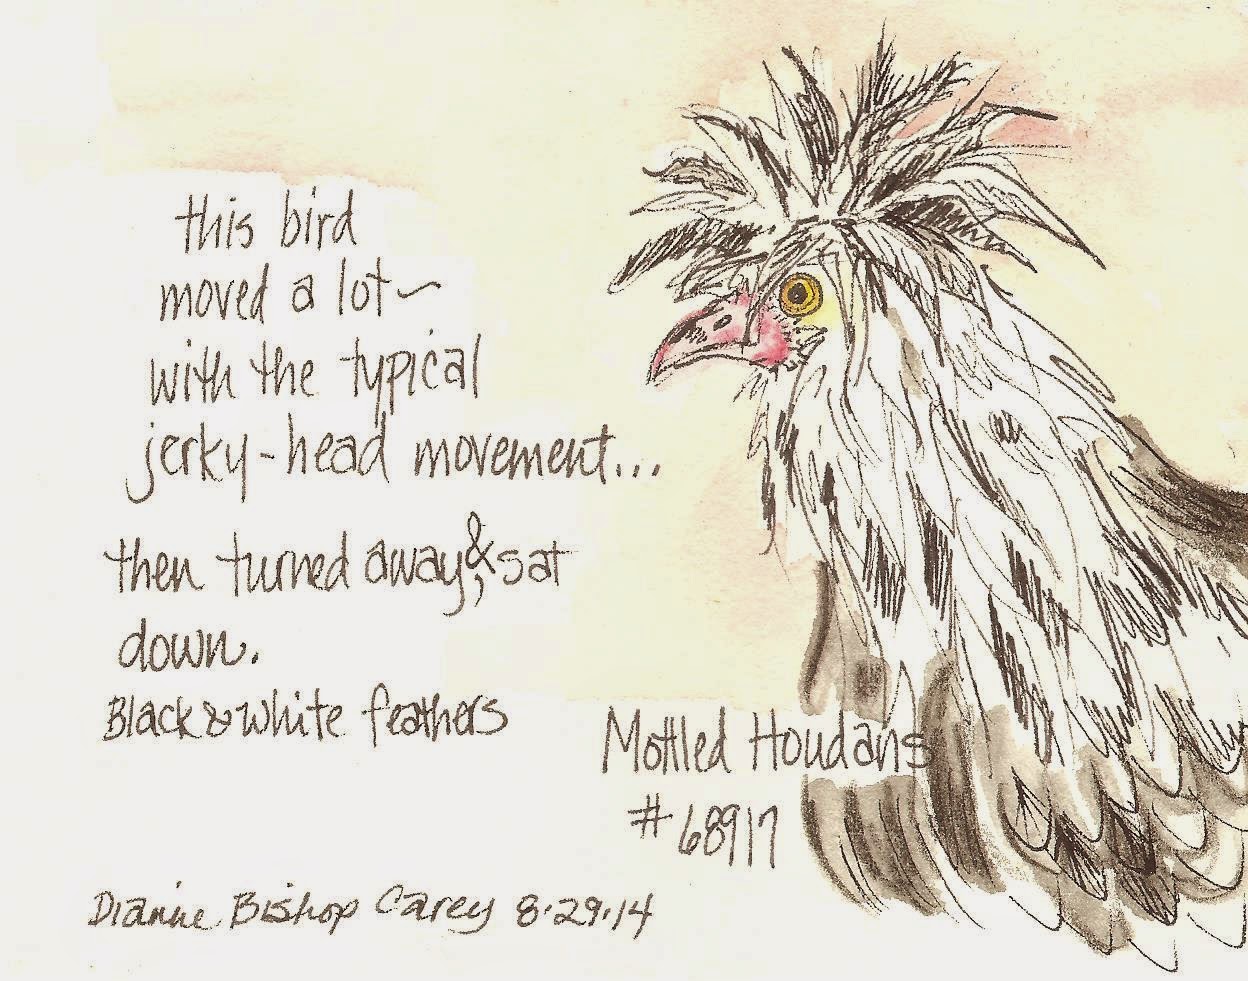 this bird
moved a lot~
with the typical
jerky-head movement...
then turned away, & sat
down.
Black & white feathers
Mottled Houdans
# 68917
Dianne Bishop Carey 8.29.14